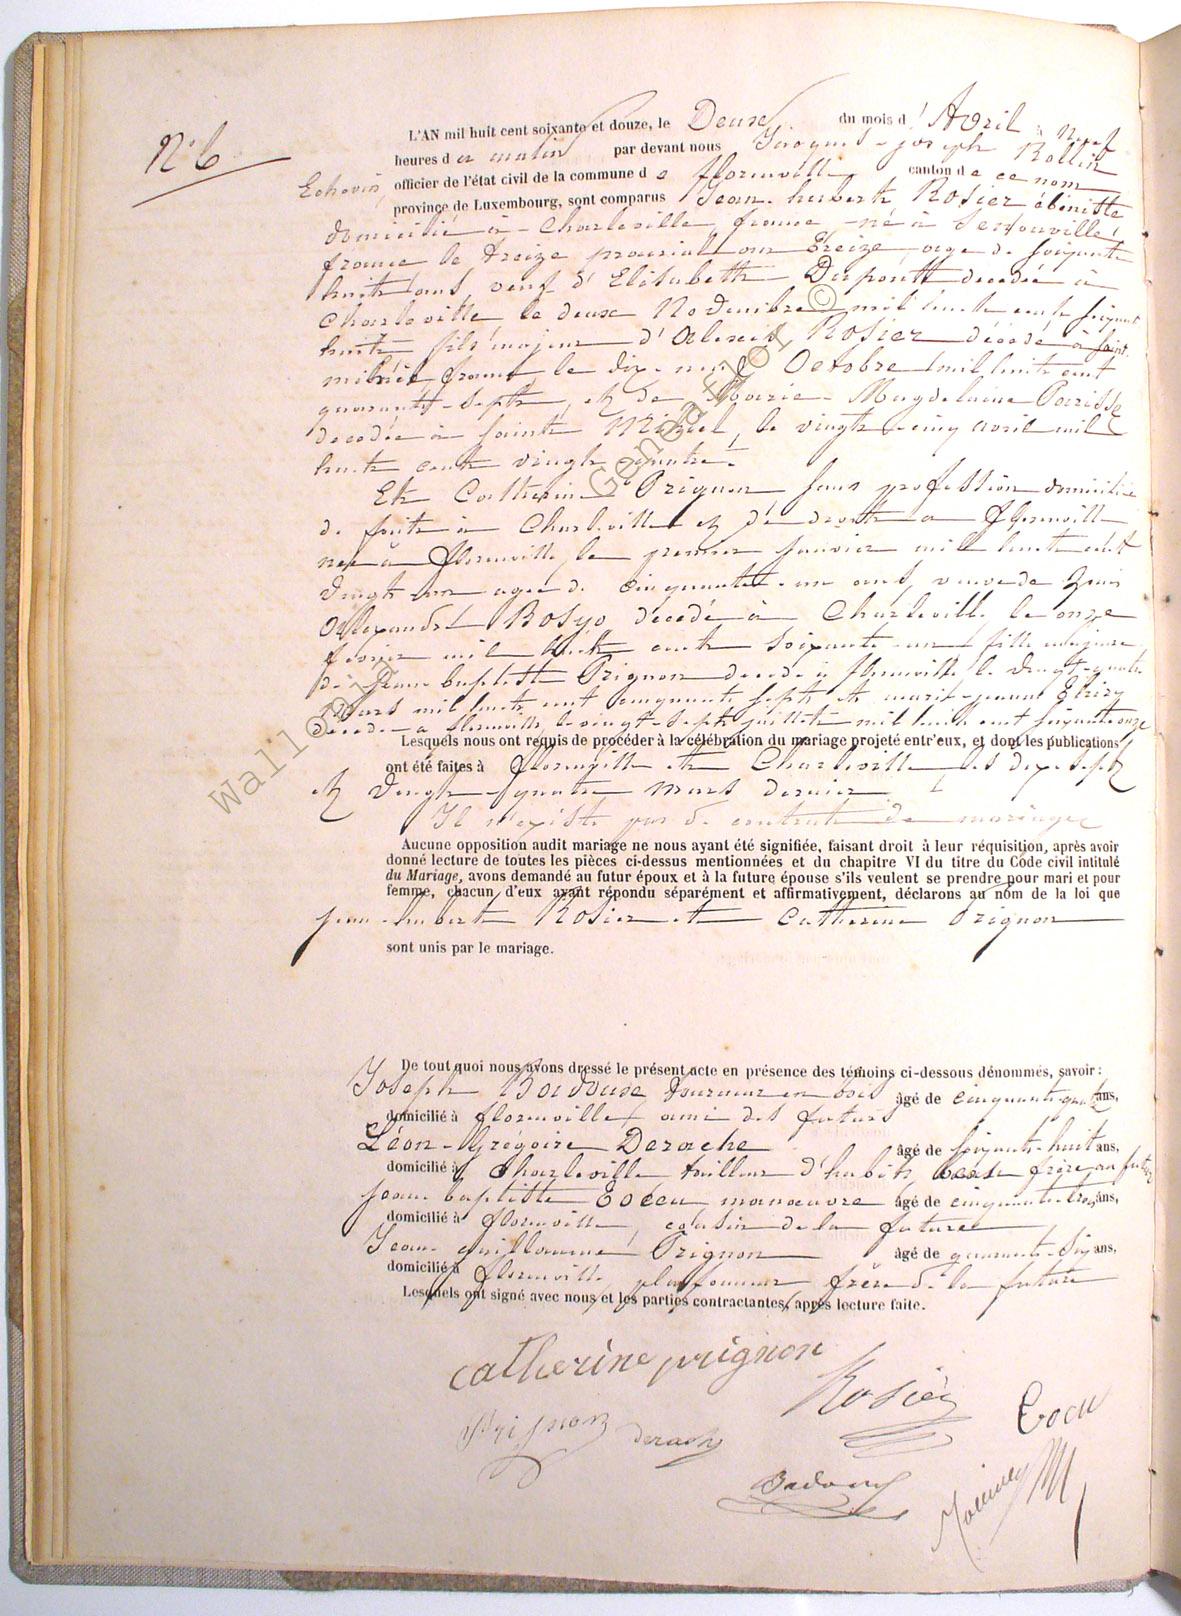 N° 6
L'AN mil huit cent soixante et douze, le Deux du mois d'Avril à Neuf
heures du matin par devant nous Jacques-Joseph Rollin
Echevin officier de l'état civil de la commune de florenville canton de ce nom
province de Luxembourg, sont comparus Jean-hubert Rosier ébéniste
domicilié à Charleville, france né à
france le treize prairial an treize, agé de soixante
huit ans, veuf d'Elisabeth Dupontt decedée à
Charleville le deux Novembre mil huit cent soixante
huit fils majeur d'Alexis Rosier décédé à saint
mihiel france le dix-neuf Octobre mil huit cent
quarante-sept, et de Marie-Magdelaine Parisse
decedée à saint Mihiel, le vingt-cinq avril mil
huit cent vingt-quatre.
Et Catherine Prignon, sans profession domiciliée
de fait à Charleville et de droit à florenville
née à florenville, le premier janvier mil huit cent
vingt-un agée de cinquante-un ans, veuve de
Alexandre décédé à Charleville le onze
février mil huit cent soixante-un fille majeure
de Jean baptiste Prignon decedé à florenville le vingt-quatre
mars mil huit cent cinquante sept et marie-jeanne
decedée à florenville, le vingt-sept juillet mil huit cent soixante onze
Lesquels nous ont requis de procéder à la célébration du mariage projeté entr'eux, et dont les publications
ont été faites à florenville et Charleville les dix-sept
et vingt-quatre mars dernier
Il n'existe pas de contrat de mariage
Aucune opposition audit mariage ne nous ayant été signifiée, faisant droit à leur réquisition, après avoir
donné lecture de toutes les pièces ci-dessus mentionnées et du chapitre VI du titre du Code civil intitulé
du Mariage, avons demandé au futur époux et à la future épouse s'ils veulent se prendre pour mari et pour
femme, chacun d'eux ayant répondu séparément et affirmativement, déclarons au nom de la loi que
jean-hubert Rosier et Catherine Prignon
sont unis par le mariage.
De tout quoi nous avons dressé le présent acte en présence des témoins ci-dessous dénommés, savoir:
Joseph tourneur en bois âgé de cinquante-quatre ans,
domicilié à florenville, ami des futurs
Léon-Grégoire Derache âgé de soixante-huit ans,
domicilié à Charleville, tailleur d'habits, beau frère au futur
jean baptiste Eocu, manœuvre âgé de cinquante trois ans,
domicilié à florenville, cousin de la future
Jean guillaume Prignon âgé de quarante-six ans,
domicilié à florenville, plafonneur, frère de la future
Lesquels ont signé avec nous et les parties contractantes, après lecture faite.
catherine prignon
Rosier
Eocu
Prignon
derache
Wallonia © Geneaflor